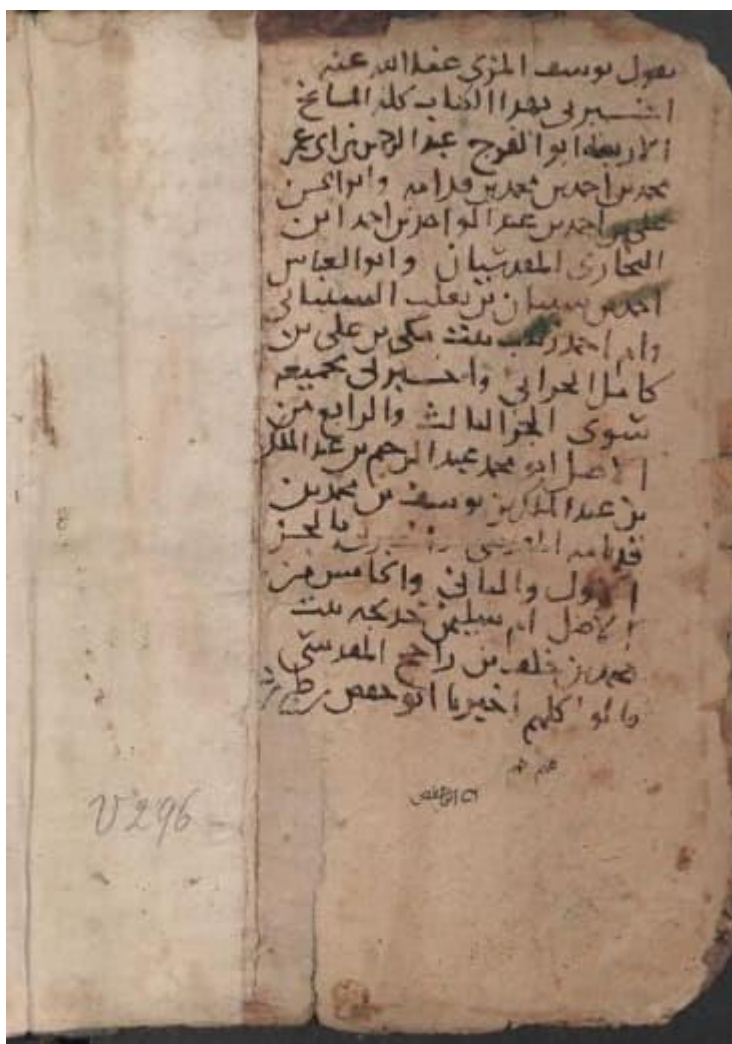 يقول يوسف المزي عفا الله عنه
اخبرني بهذا الكتاب كله المشايخ
الاربعة ابو الفرج عبد الرحمن بن ابي عمر
محمد بن احمد بن محمد بن قدامه وابو الحسن
علي بن احمد بن عبد الواحد بن احمد ابن
البخاري المقدسيان وابو العباس
احمد بن شيبان بن تغلب الشيباني
وام احمد زينب بنت مكي بن علي بن
كامل الحراني واخبرني بجميعه
سوى الجز الثالث والرابع من
الاصل ابو محمد عبد الرحيم بن عبد الملك
بن عبد الملك بن يوسف بن محمد بن
قدامه المقدسي بالجز
الاول والثاني والخامس من
الاصل ام سليمن خديجه بنت
محمد بن خلف بن راجح المقدسي
قالوا كلهم اخبرنا ابو حفص
V296